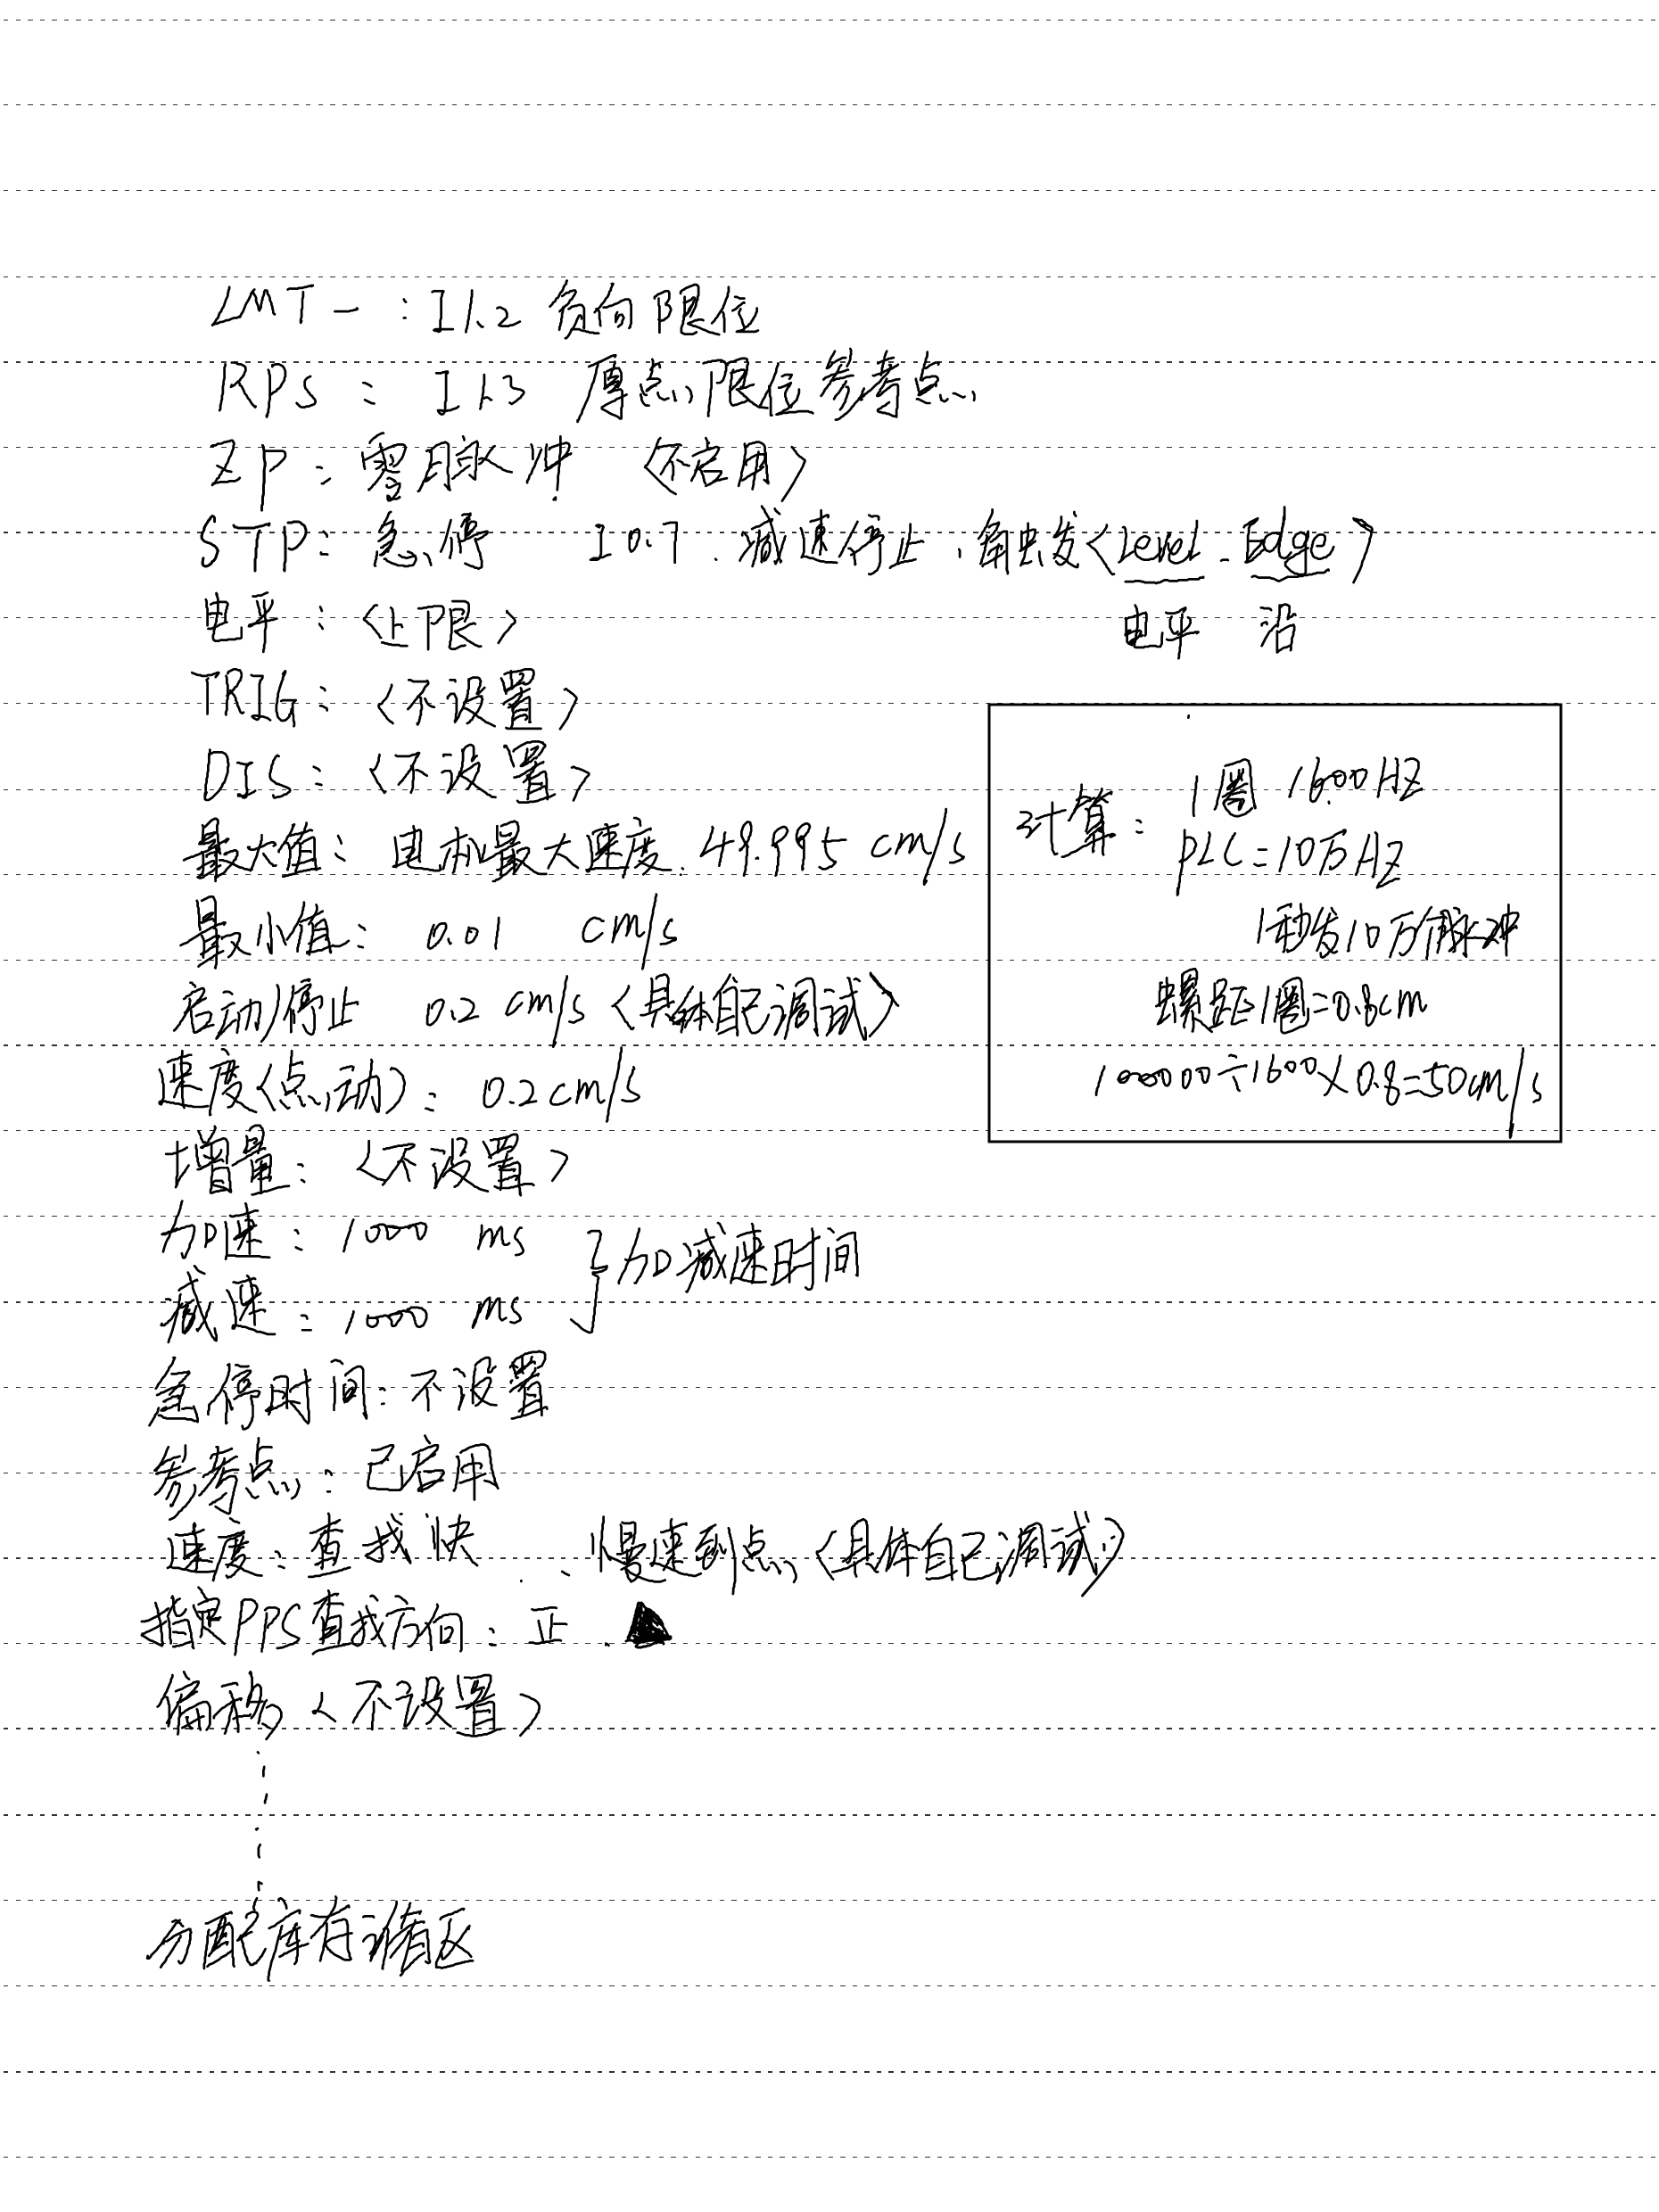 LMT- : I1.2 负向限位
RPS : I1.3 原点限位参考点
ZP : 零脉冲 <不启用>
STP : 急停 I0.7 . 减速停止 . 触发<Level . Edge>
电平 沿
电平 : <上限>
TRIG : <不设置>
DIS : <不设置>
最大值 : 电机最大速度. 49.995 cm/s
最小值 : 0.01 cm/s
启动/停止 0.2 cm/s <具体自己调试>
速度<点动> : 0.2cm/s
增量 : <不设置>
加速 : 1000 ms
减速 : 1000 ms
} 加减速时间
急停时间 : 不设置
参考点 : 已启用
速度 : 查找快 . 、慢速到点 <具体自己调试>
指定PPS查找方向 : 正 .
偏移 <不设置>
分配库存诸区
计算 : 1圈 1600HZ
PLC=10万HZ
1秒发10万个脉冲
螺距1圈=0.8cm
100000÷1600×0.8=50cm/s